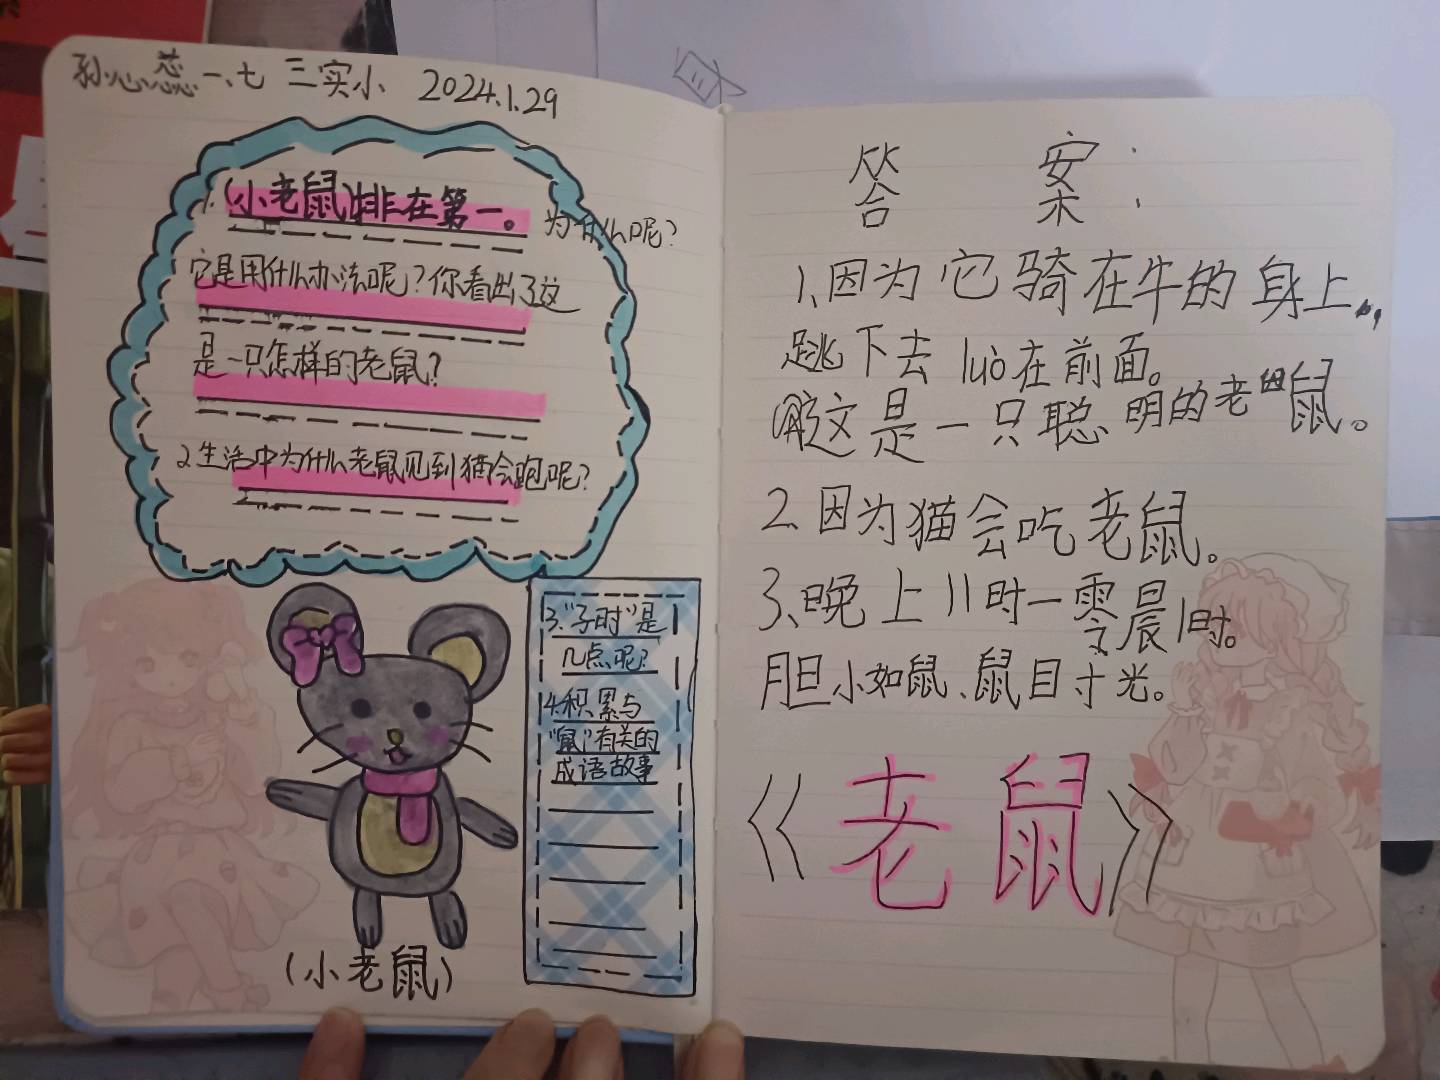 孙心蕊 一、七 三实小 2024.1.29
1.(小老鼠)排在第一。为什么呢?
它是用什么办法呢?你看出了这
是一只怎样的老鼠?
2.生活中为什么老鼠见到猫会跑呢?
3."子时"是
几点呢?
4.积累与
"鼠"有关的
成语故事
(小老鼠)
答案:
1、因为它骑在牛的身上,
跳下去luò在前面。
这是一只聪明的老鼠。
2、因为猫会吃老鼠。
3、晚上11时一零晨1时。
胆小如鼠、鼠目寸光。
《老鼠》